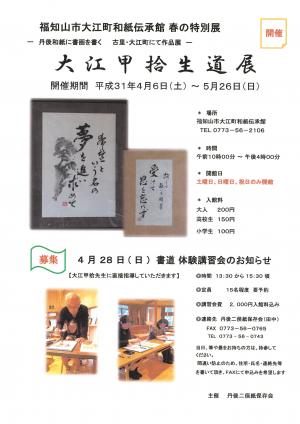 福知山市大江町和紙伝承館 春の特別展
開催
― 丹後和紙に書画を書く 古里・大江町にて作品展 ―
大江甲拾生道展
開催期間 平成31年4月6日(土)~5月26日(日)
* 場所
福知山市大江町和紙伝承館
TEL 0773-56-2106
* 時間
午前10時00分 ~ 午後4時00分
* 開館日
土曜日、日曜日、祝日のみ開館
* 入館料
大人 200円
高校生 150円
小学生 100円
夢を追い求めて
募集
4月28日(日) 書道 体験講習会のお知らせ
【大江甲拾先生に直接指導していただきます】
◎時間 13:30から15:30頃
◎定員 15名程度 要予約
◎講習会費 2,000円入館料込み
◎連絡先 丹後二俣紙保存会(田中)
FAX 0773-56-0765
TEL 0773-56-0743
当日、筆や墨をお持ちの方は、持参して
ください。
間違い防止のため、住所・氏名・連絡先等
を書いて頂き、FAXにて申込みを希望します
主催 丹後二俣紙保存会